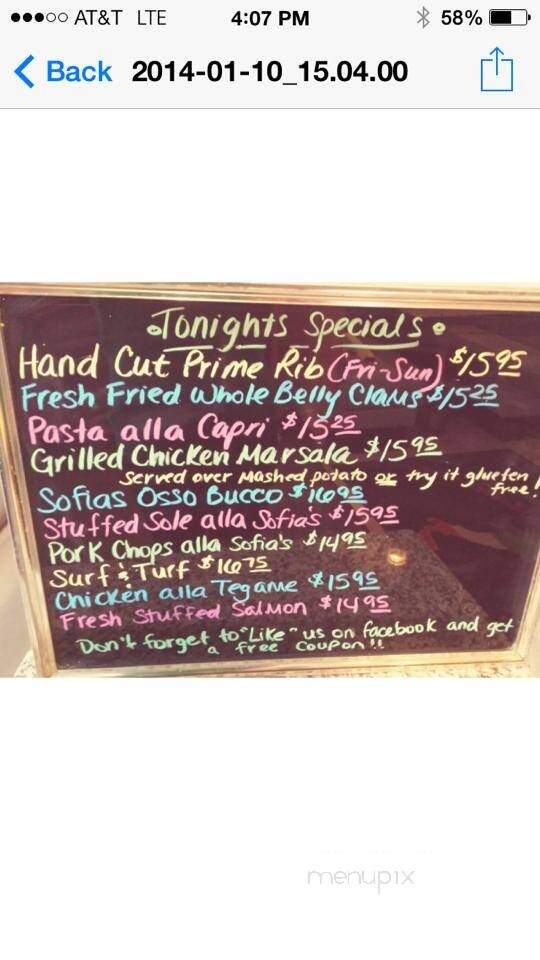 AT&T LTE 4:07 PM 58%
Back 2014-01-10_15.04.00
Tonights Specials
Hand Cut Prime Rib (Fri-Sun) $15.95
Fresh Fried Whole Belly Clams $15.25
Pasta alla Capri $15.25
Grilled Chicken Marsala $15.95
Served over Mashed potato or try it glueten
free!
Sofias Osso Bucco $16.95
Stuffed Sole alla Sofia's $15.95
Pork Chops alla Sofia's $14.95
Surf & Turf $16.75
Chicken alla Tegame $15.95
Fresh Stuffed Salmon $14.95
Don't forget to "Like" us on facebook and get
a free coupon!!
menupix